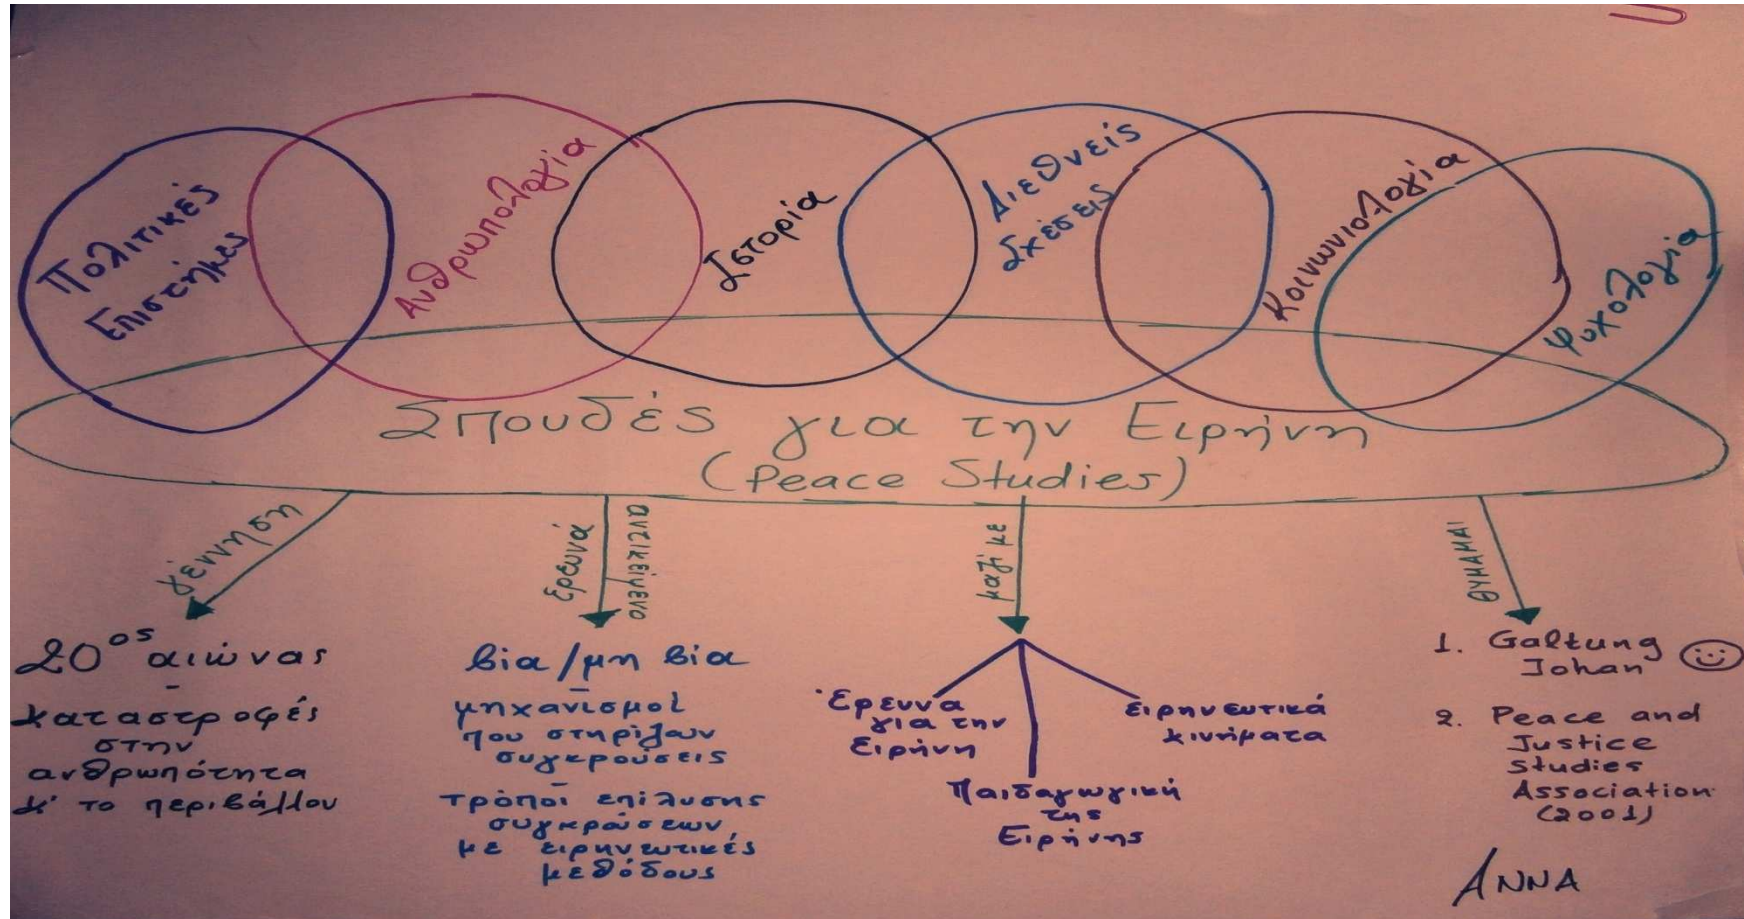 Πολιτικές
Επιστήμες
Ανθρωπολογία
Ιστορία
Διεθνείς
Σχέσεις
Κοινωνιολογία
Ψυχολογία
Σπουδές για την Ειρήνη
(Peace Studies)
γέννηση
20ος αιώνας
-
καταστροφές
στην
ανθρωπότητα
κ' το περιβάλλον
ερευνά
αντικείμενο
βία/μη βία
-
μηχανισμοί
που στηρίζουν
συγκρούσεις
-
τρόποι επίλυσης
συγκρούσεων
με ειρηνευτικές
μεθόδους
μαζί με
Έρευνα
για την
Ειρήνη
Παιδαγωγική
της
Ειρήνης
ειρηνευτικά
κινήματα
ΘΥΜΑΜΑΙ
1. Galtung
Johan
2. Peace and
Justice
Studies
Association
(2001)
ANNA